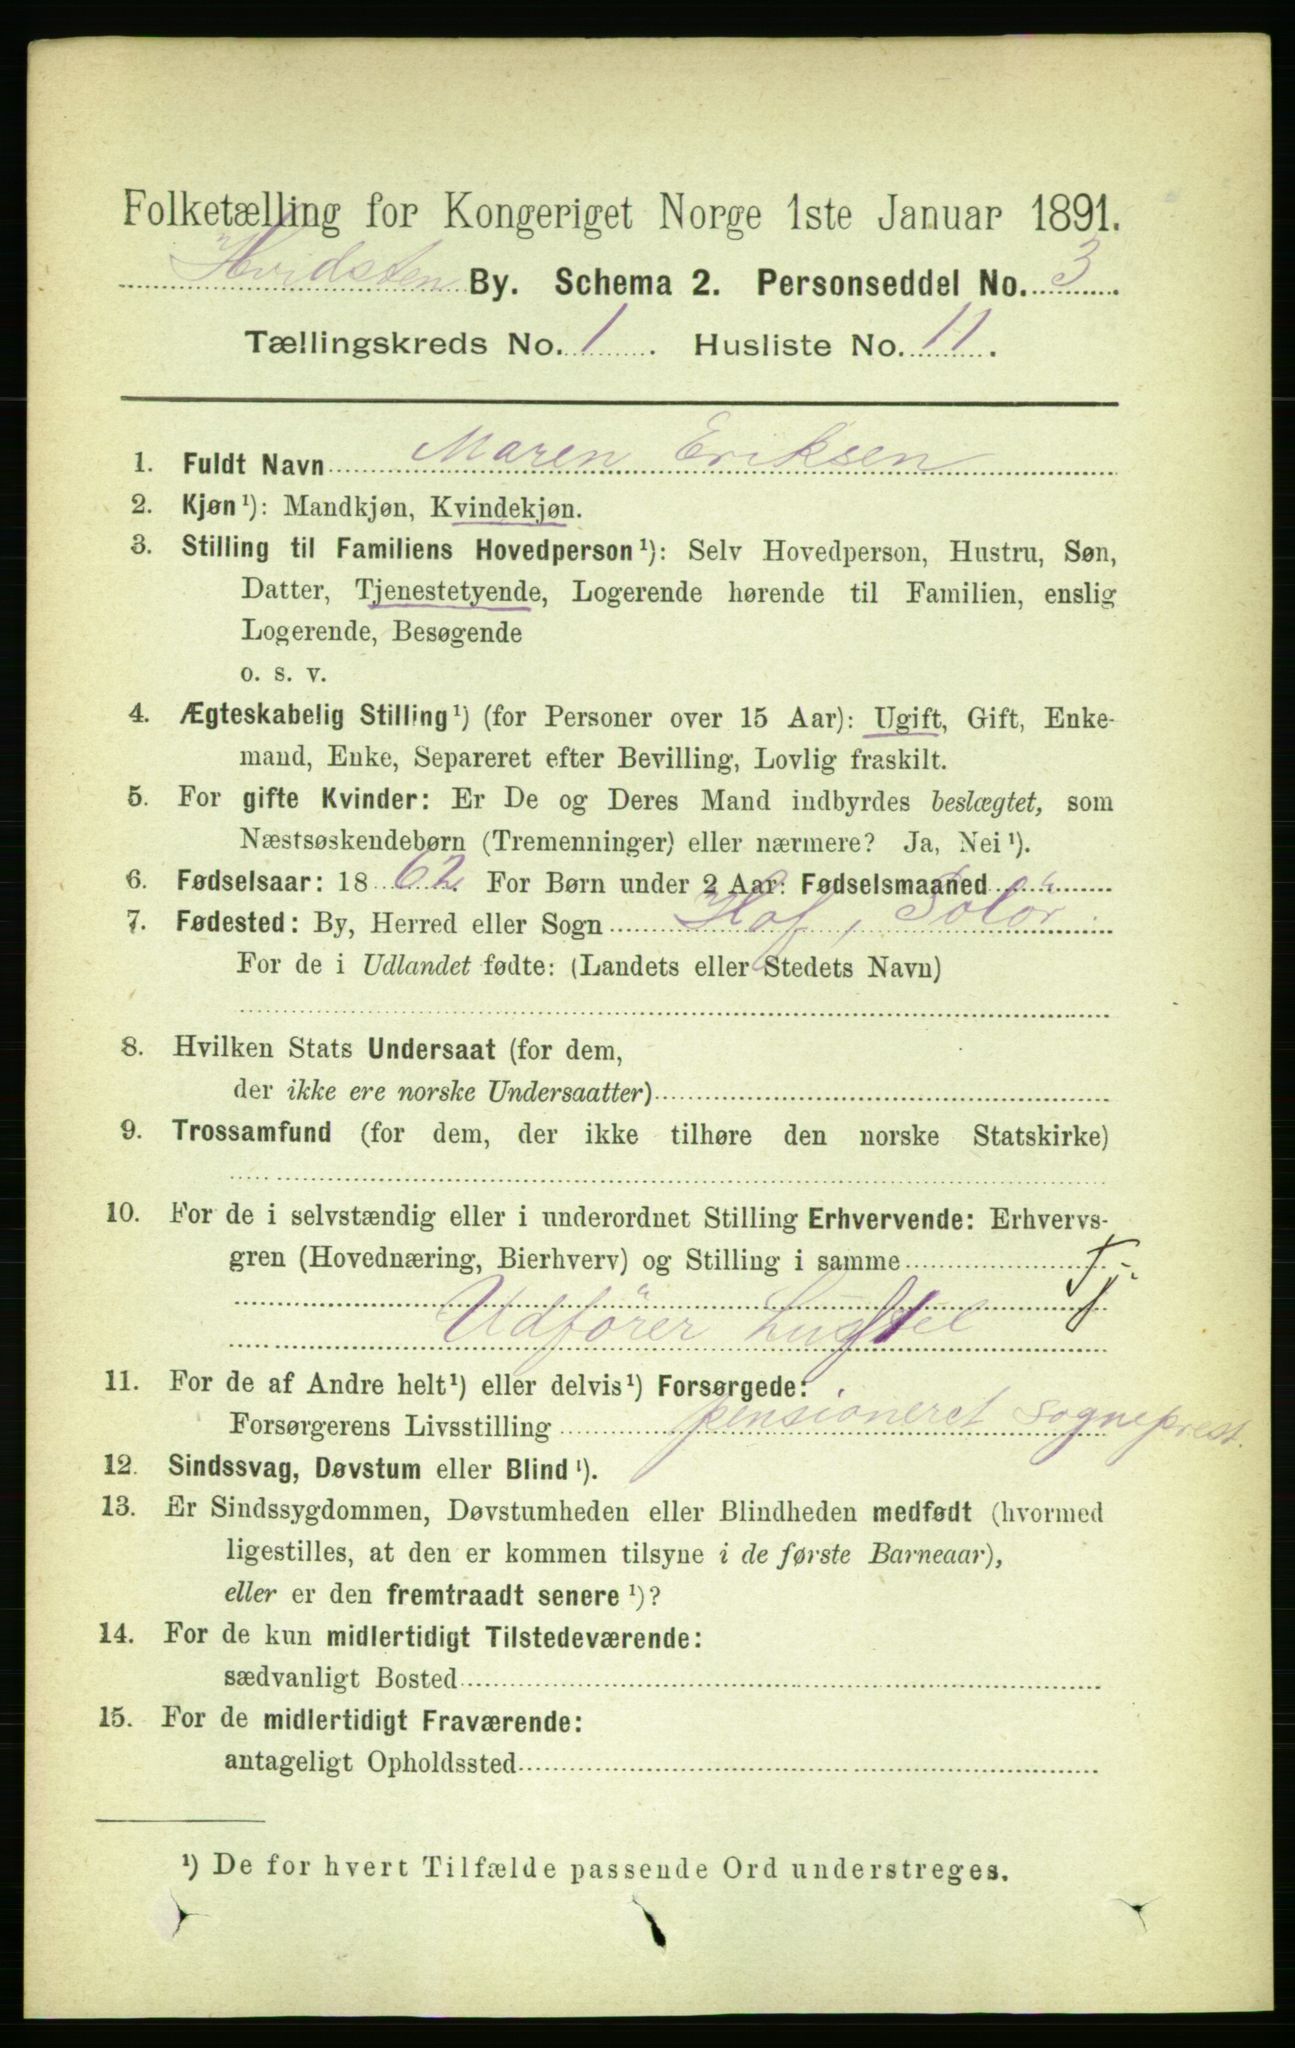 Folketælling for Kongeriget Norge 1ste Januar 1891.
Hvidsten By. Schema 2. Personseddel No. 3.
Tællingskreds No. 1. Husliste No. 11.
1. Fuldt Navn Maren Eriksen
2. Kjøn¹): Mandkjøn, Kvindekjøn.
3. Stilling til Familiens Hovedperson¹): Selv Hovedperson, Hustru, Søn,
Datter, Tjenestetyende, Logerende hørende til Familien, enslig
Logerende, Besøgende
o. s. v.
4. Ægteskabelig Stilling¹) (for Personer over 15 Aar): Ugift, Gift, Enke-
mand, Enke, Separeret efter Bevilling, Lovlig fraskilt.
5. For gifte Kvinder: Er De og Deres Mand indbyrdes beslægtet, som
Næstsøskendebørn (Tremenninger) eller nærmere? Ja, Nei¹).
6. Fødselsaar: 1862. For Børn under 2 Aar: Fødselsmaaned
7. Fødested: By, Herred eller Sogn Hof, Solör.
For de i Udlandet fødte: (Landets eller Stedets Navn)
8. Hvilken Stats Undersaat (for dem,
der ikke ere norske Undersaatter)
9. Trossamfund (for dem, der ikke tilhøre den norske Statskirke)
10. For de i selvstændig eller i underordnet Stilling Erhvervende: Erhvervs-
gren (Hovednæring, Bierhverv) og Stilling i samme Tj.
Udförer
11. For de af Andre helt¹) eller delvis¹) Forsørgede:
Forsørgerens Livsstilling pensioneret Sogneprest.
12. Sindssvag, Døvstum eller Blind¹).
13. Er Sindssygdommen, Døvstumheden eller Blindheden medfødt (hvormed
ligestilles, at den er kommen tilsyne i de første Barneaar),
eller er den fremtraadt senere¹)?
14. For de kun midlertidigt Tilstedeværende:
sædvanligt Bosted
15. For de midlertidigt Fraværende:
antageligt Opholdssted
¹) De for hvert Tilfælde passende Ord understreges.